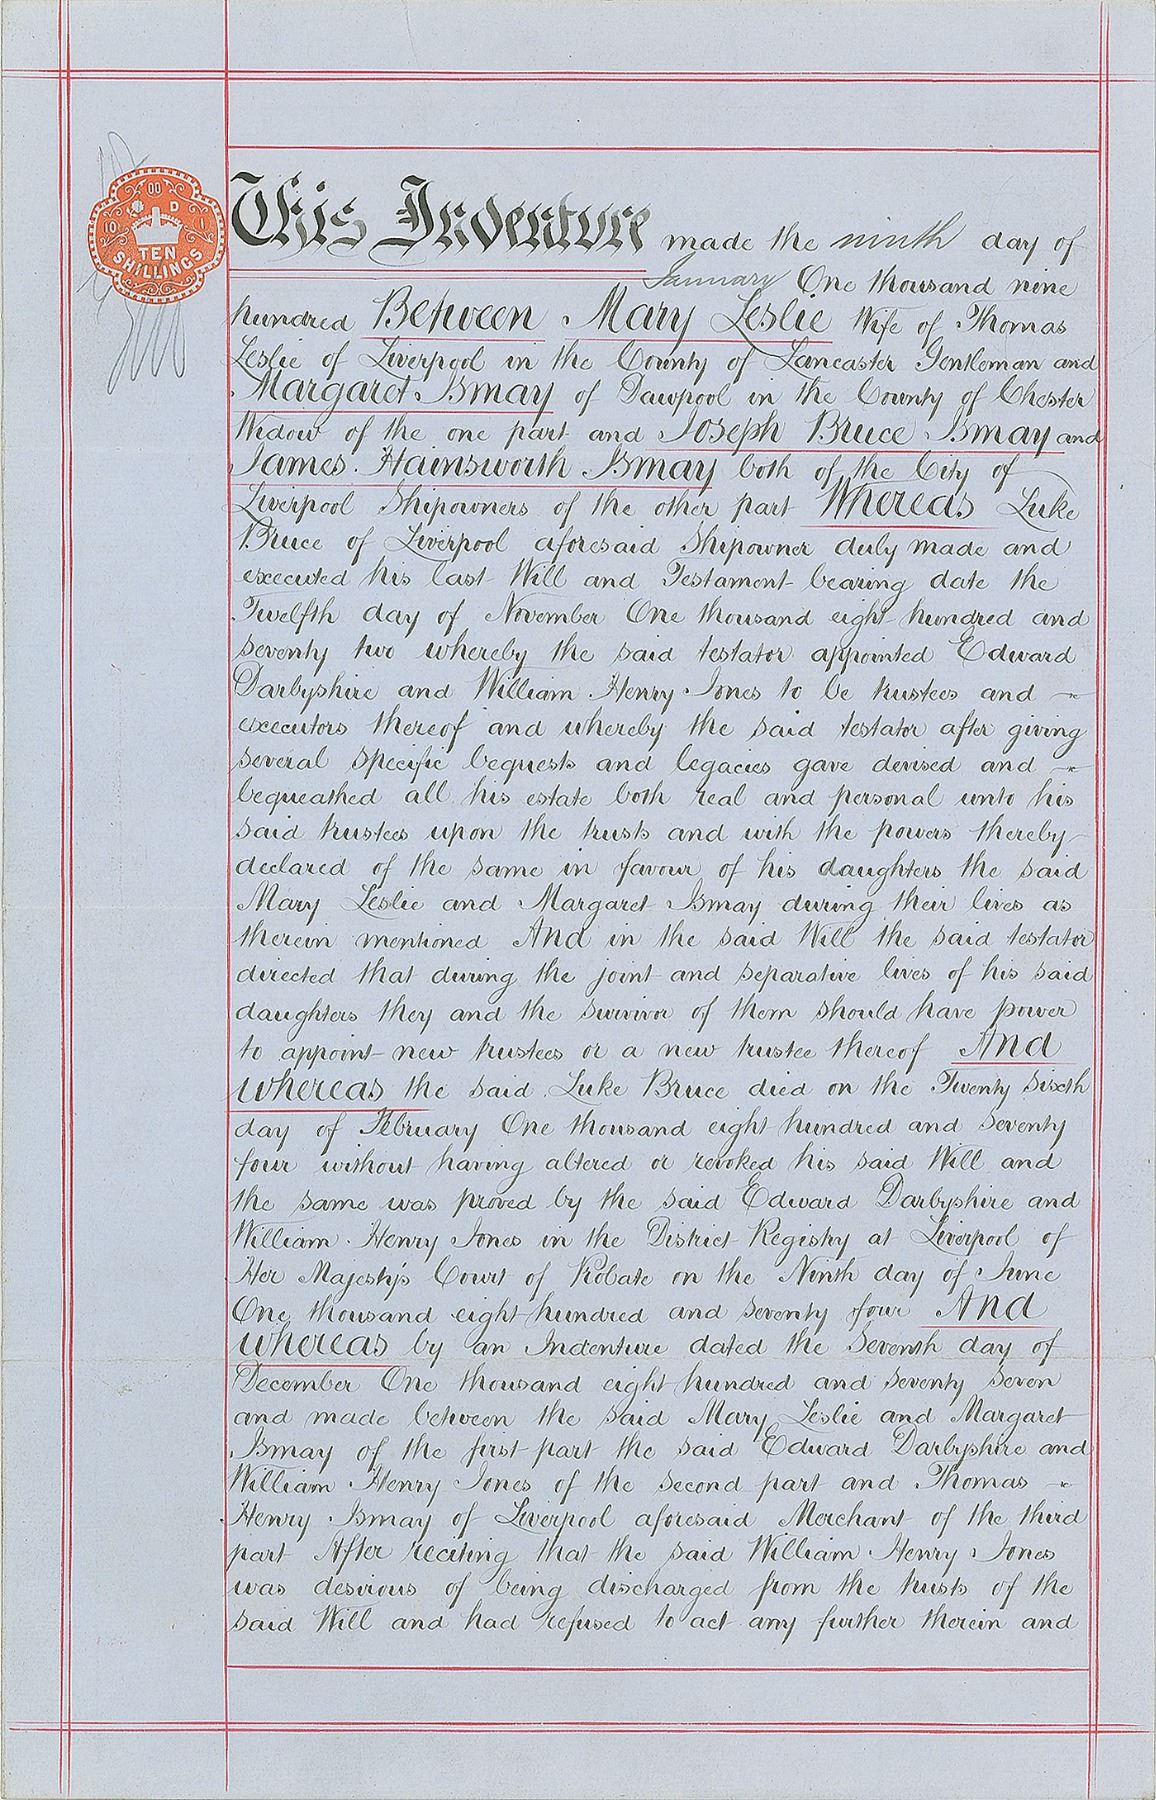 00
D
10
1
TEN
SHILLINGS
This Indenture made the ninth day of
January One thousand nine
hundred Between Mary Leslie Wife of Thomas
Leslie of Liverpool in the County of Lancaster Gentleman and
Margaret Ismay of Dawpool in the County of Chester
Widow of the one part and Joseph Bruce Ismay and
James Hainsworth Ismay both of the City of
Liverpool Shipowners of the other part Whereas Luke
Bruce of Liverpool aforesaid Shipowner duly made and
executed his last Will and Testament bearing date the
Twelfth day of November One thousand eight hundred and
seventy two whereby the said testator appointed Edward
Darbyshire and William Henry Jones to be trustees and
executors thereof and whereby the said testator after giving
several specific bequests and legacies gave devised and
bequeathed all his estate both real and personal unto his
said trustees upon the trusts and with the powers thereby
declared of the same in favour of his daughters the said
Mary Leslie and Margaret Ismay during their lives as
therein mentioned And in the said Will the said testator
directed that during the joint and separative lives of his said
daughters they and the survivor of them should have power
to appoint new trustees or a new trustee thereof And
whereas the said Luke Bruce died on the Twenty sixth
day of February One thousand eight hundred and seventy
four without having altered or revoked his said Will and
the same was proved by the said Edward Darbyshire and
William Henry Jones in the District Registry at Liverpool of
Her Majesty's Court of Probate on the Ninth day of June
One thousand eight hundred and seventy four And
whereas by an Indenture dated the Seventh day of
December One thousand eight hundred and seventy seven
and made between the said Mary Leslie and Margaret
Ismay of the first part the said Edward Darbyshire and
William Henry Jones of the second part and Thomas
Henry Ismay of Liverpool aforesaid Merchant of the third
part After reciting that the said William Henry Jones
was desirous of being discharged from the trusts of the
said Will and had refused to act any further therein and